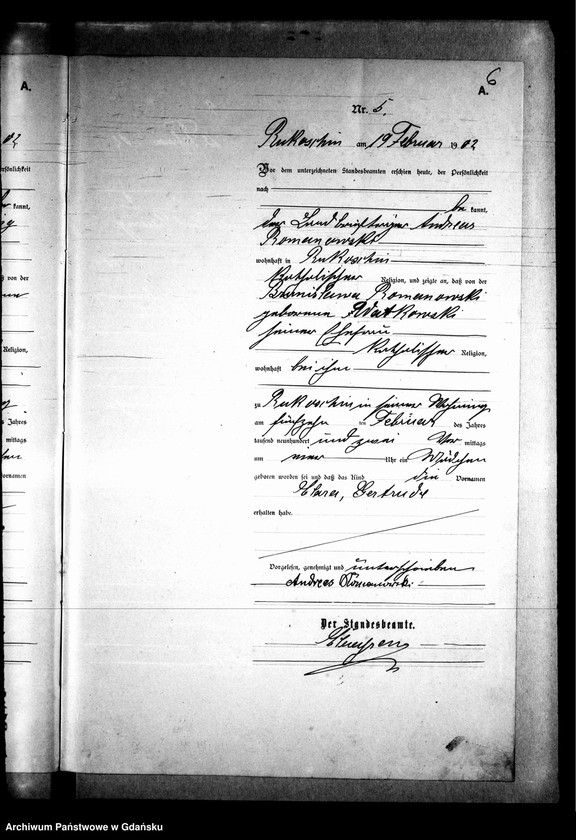 6
A.
Nr. 5.
Rukoschin am 19 Februar 1902
Vor dem unterzeichneten Standesbeamten erschien heute, der Persönlichkeit
nach
be kannt,
der Andreas
Romanowski
wohnhaft in Rukoschin
katholischer Religion, und zeigte an, daß von der
Bronislawa Romanowski
geborene Watkowski
seiner Ehefrau
katholischer Religion,
wohnhaft bei ihm
zu Rukoschin in seiner Wohnung
am fünfzehn ten Februar des Jahres
tausend neunhundert und zwei Vor mittags
um Uhr ein Mädchen
geboren worden sei und daß das Kind die Vornamen
Clara, Gertrude
erhalten habe.
Vorgelesen, genehmigt und unterschrieben
Andreas Romanowski
Der Standesbeamte.
A.
02
ersönlichkeit
kannt,
ß von der
Religion,
s Jahres
mittags
Vornamen
Archiwum Państwowe w Gdańsku